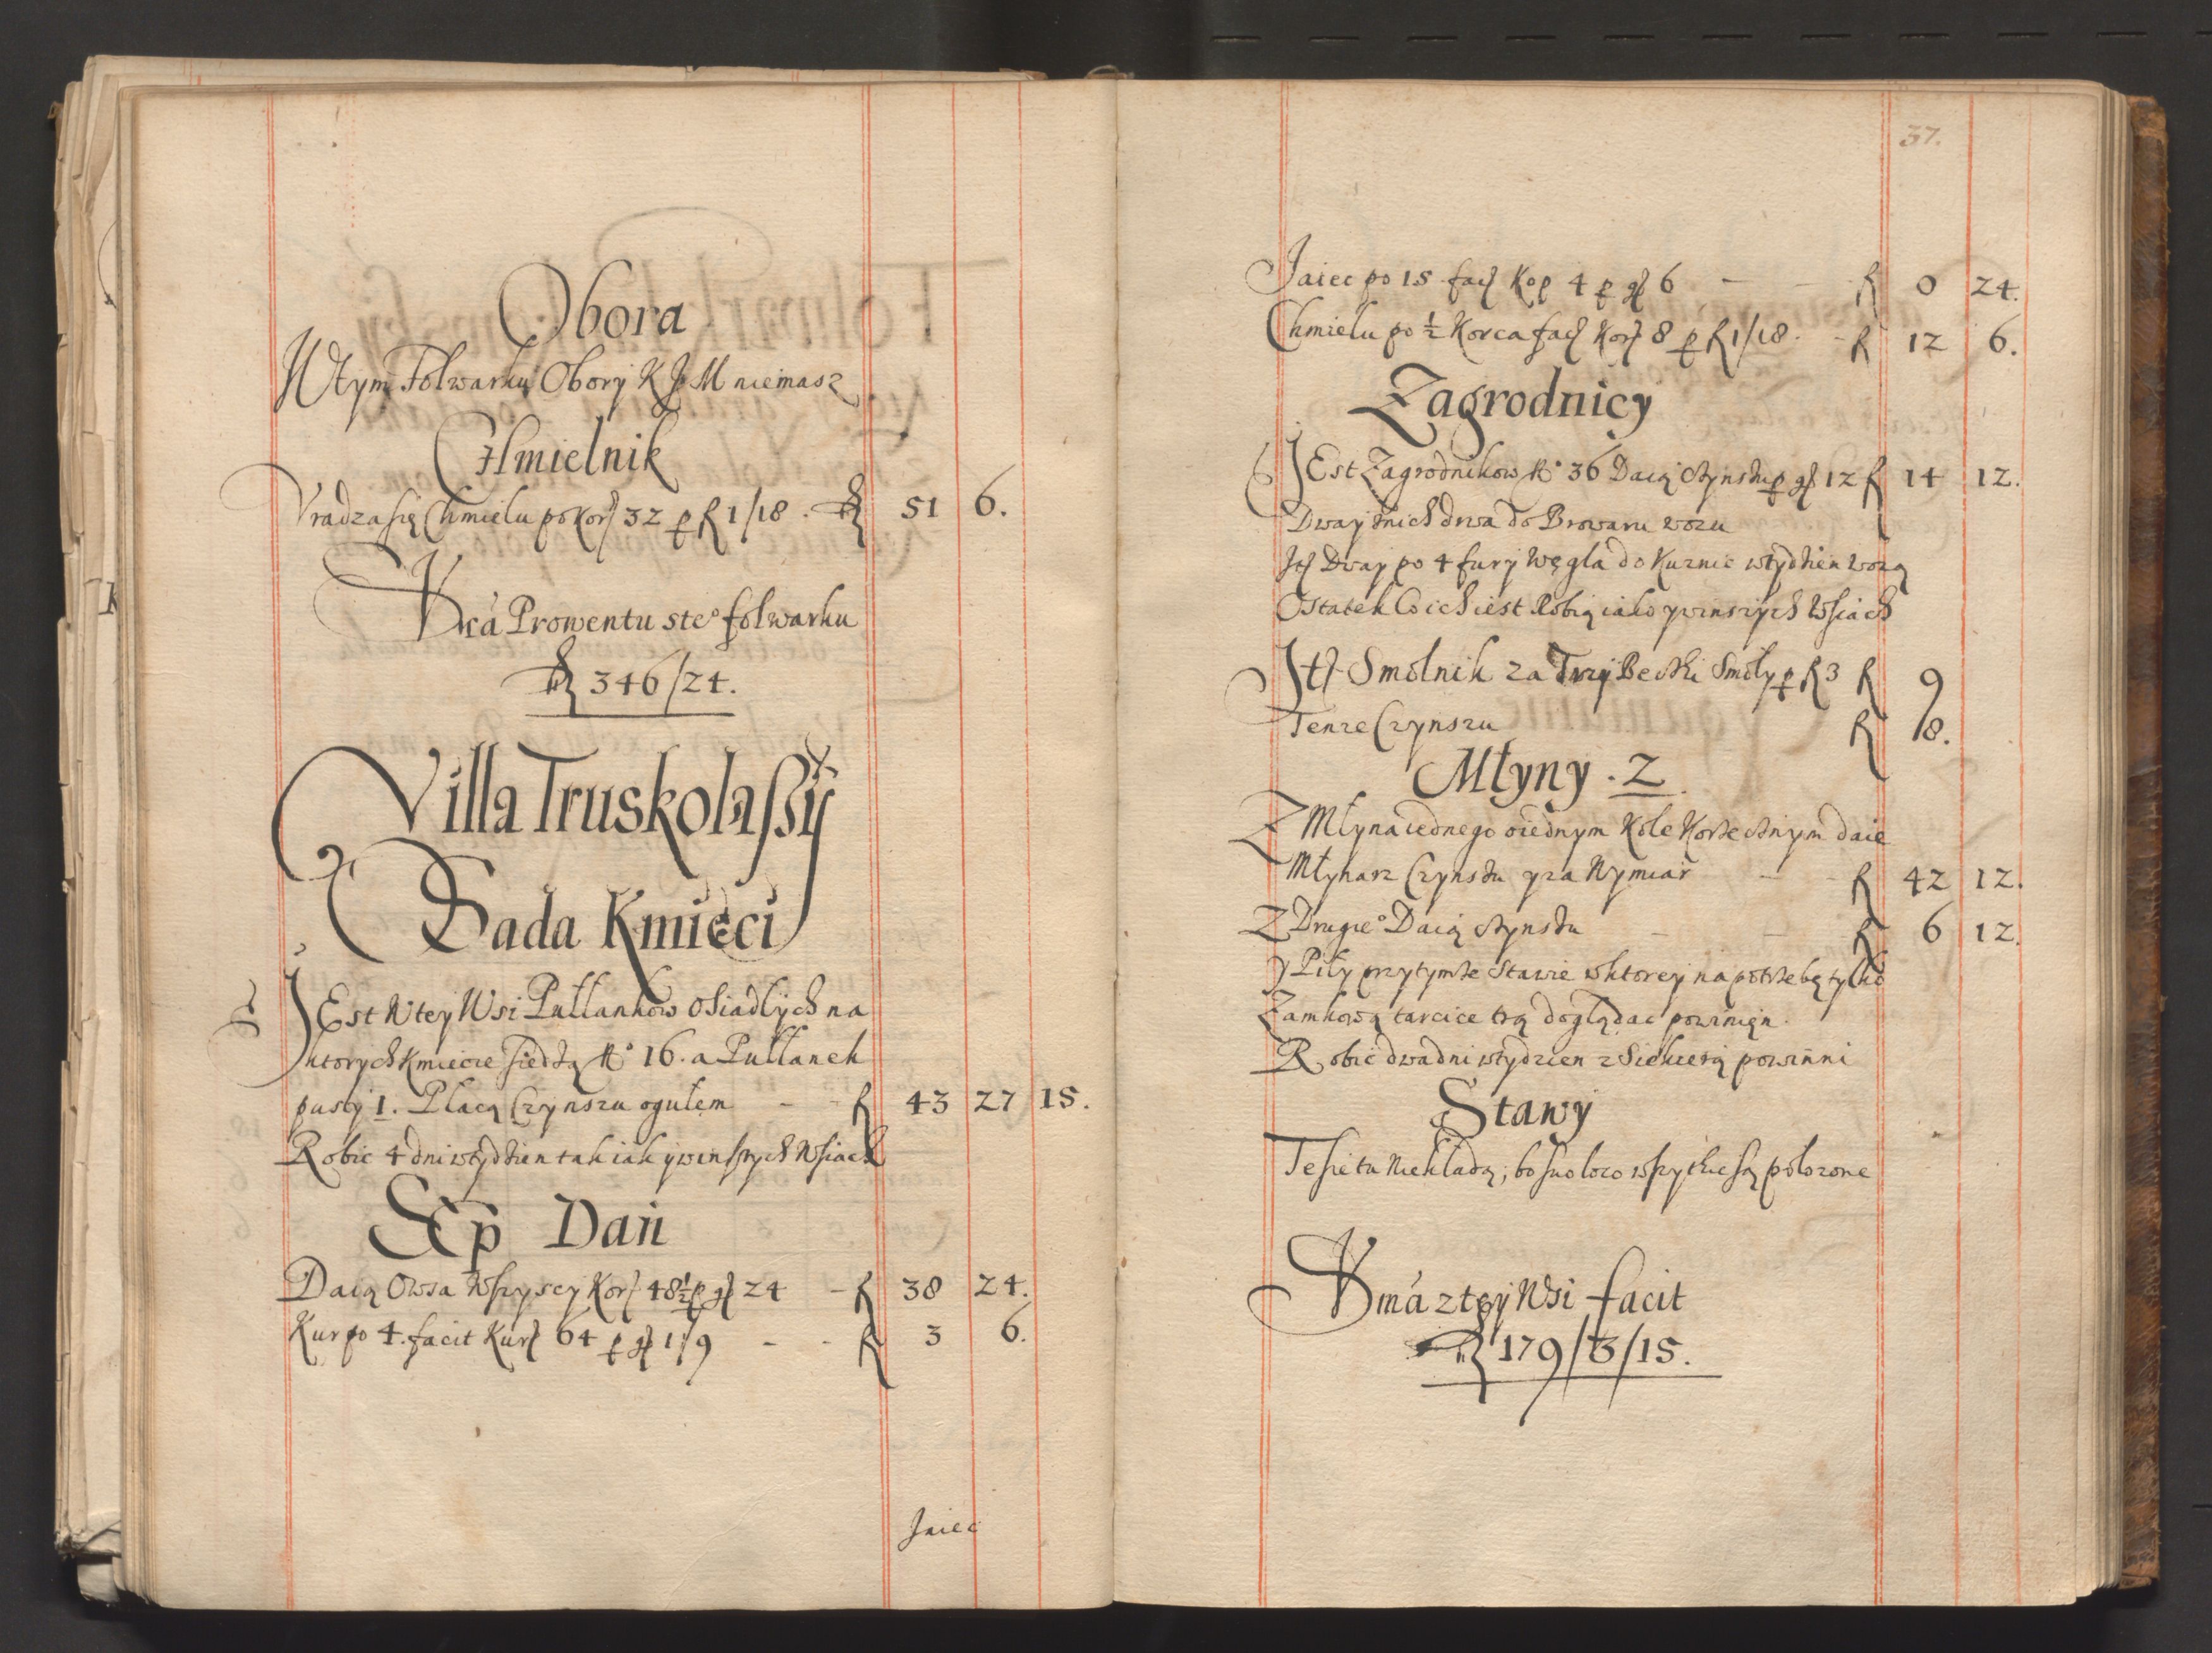 Obora
W tym Folwarku Obory K J M niemasz
Chmielnik
Vradza się Chmielu po Kor 32 p fl 1/18. fl 51 6.
Sma Prowentu ste° folwarku
fl 346/24.
Villa Truskolassÿ
Sada Kmieci
JEst W tey Wsi Pułłankow Osiadłych na
ktorych Kmiecie siedżą N° 16. a Pułłanek
pusty 1. Płacą Czynszu ogułem - - fl 43 27 15.
Robic 4 dni w tydzien tak iak y w inszych Wsiach
Sep Dań
Daią Owsa Wszyscy Kor 48½ p gr 24 - fl 38 24.
Kur po 4. facit Kur 64 p gr 1/9 - - fl 3 6.
Jaiec
37.
Jaiec po 15 fac Kop 4 p gr 6 - - fl 0 24.
Chmielu po ½ Korca fac Kor 8 p fl 1/18. - fl 12 6.
Zagrodnicy
JEst Zagrodnikow N° 36 Daią Czynszu p gr 12 fl 14 12.
Dway znich drwa do Browaru wozu
Jt Dway po 4 fury Węgla do Kuznic w tydzien wozą
Ostatek Co ich iest Robią iako y w inszych Wsiach
Jt Smolnik za Trzy Beczki Smoły p fl 3 fl 9
Tenze Czynszu fl 18.
Młyny . 2.
Z Młyna iednego o iednym Kole Korzecznym daie
Młynarz Czynszu y za Wymiar - - fl 42 12.
Z Drugie° Daią Czynszu - - fl 6 12.
y Piły przytymze Stawie w ktorey na potrzebę tylko
Zamkową tarcice trą doglądac powinięn.
Robic dwa dni w tydzien z Siekierą powinni
Stawy
Te sie tu Niekładą, bo suo loco wszytkie są połozone
Sma z tey Wsi facit
fl 179/3/15.